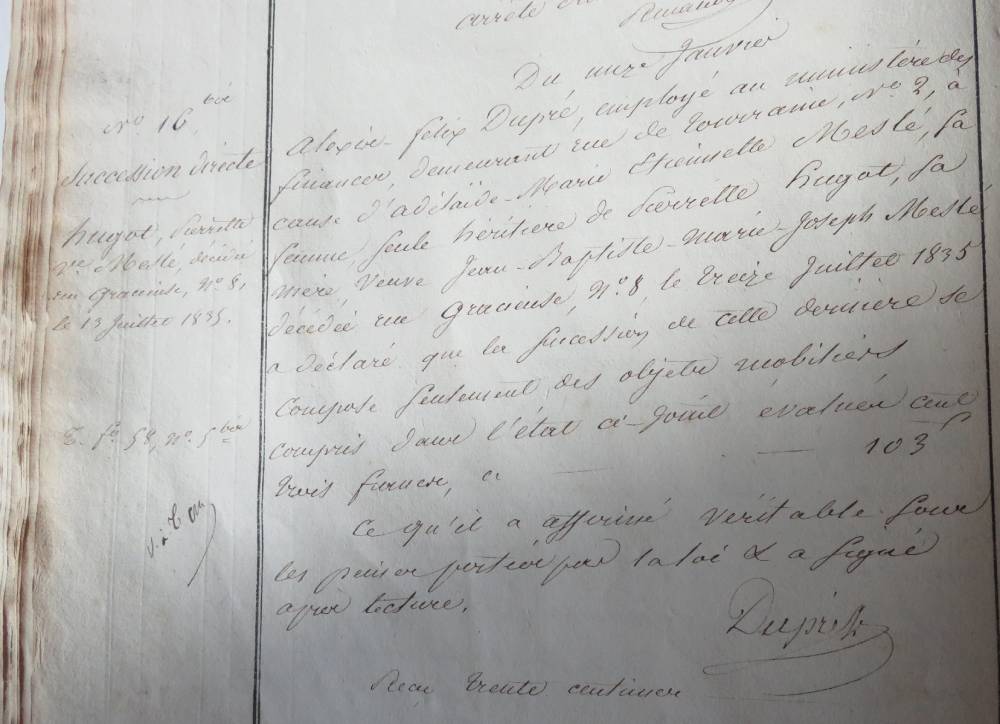 arrêté
Du onze Janvier
No 16 bis
Succession directe
hugot, Pierrette
Ve Meslé, décédée
rue Gracieuse, No 8,
le 13 Juillet 1835.
T. fo 58, No 5 bis
Alexis-felix Dupré, employé au ministère des
finances, demeurant rue de Tourraine, No 2, à
cause d'adélaïde-Marie Meslé, Sa
femme, Seule héritière de Pierrette hugot, Sa
mère, Veuve Jean-Baptiste-Marie-Joseph Meslé
décédée rue Gracieuse, No 8, le treize Juillet 1835
a déclaré que la Sucession de cette dernière se
compose Seulement des objets mobiliers
compris dans l'état ci-Joint évalués cent
trois francs, ci — — 103 f
Ce qu'il a affirmé véritable Sous
les peines portées par la loi & a Signé
après lecture.
Dupré
Reçu trente centimes